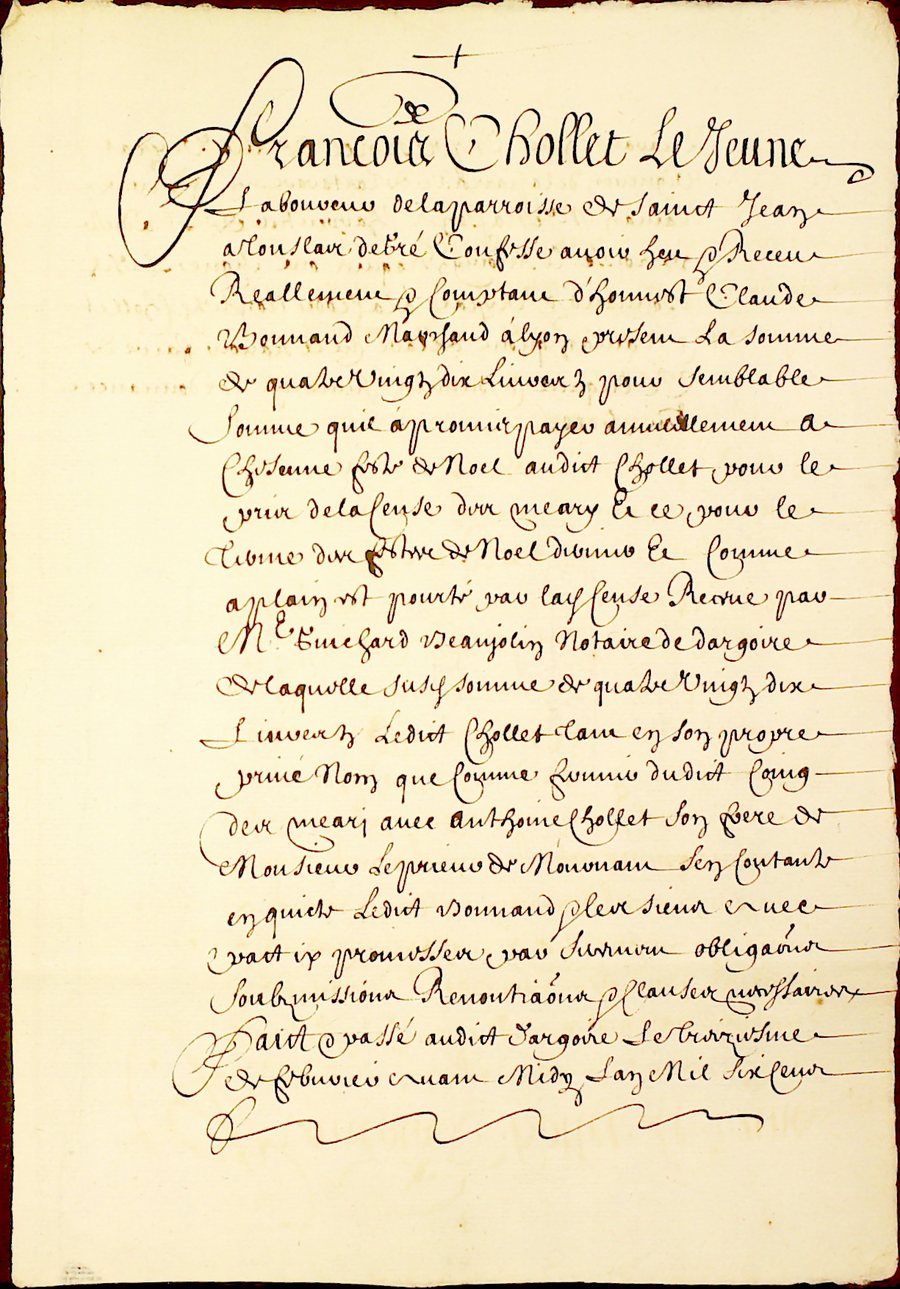 de
Francois Chollet Le Jeune
Laboureur de la parroisse de Sainct Jean
a Touslas de tré Confesse avoir heu & Receu
Reallement & Comptant d'honnest Claude
Bonnand Marchand à lyon present La somme
de quatre vingtz dix Livres pour semblable
Somme quil à promis payer annuellement a
Chescune feste de Noel audict Chollet pour le
prix de la Cense des mears Et ce pour le
terme des festes de Noel dernier Et Comme
a plain est pourté par lad Cense Receue par
Me Guichard Beaujolin Notaire de dargoire
de laquelle susd somme de quatre vingtz dix
Livres Ledict Chollet tant en son propre
privé Nom que Comme fermier dudict
des avec Anthoine Chollet Son frere de
Monsieur Le prieur de Mornant Sen Contante
en quicte Ledict Bonnand & les siens avec
pact ix promesses par serment obligaõns
Soubzmissions Renontiaõns & Clauses necessaires
Faict & passé audict dargoire Le troiziesme
de febvrier avant Midy Lan Mil Six Cens